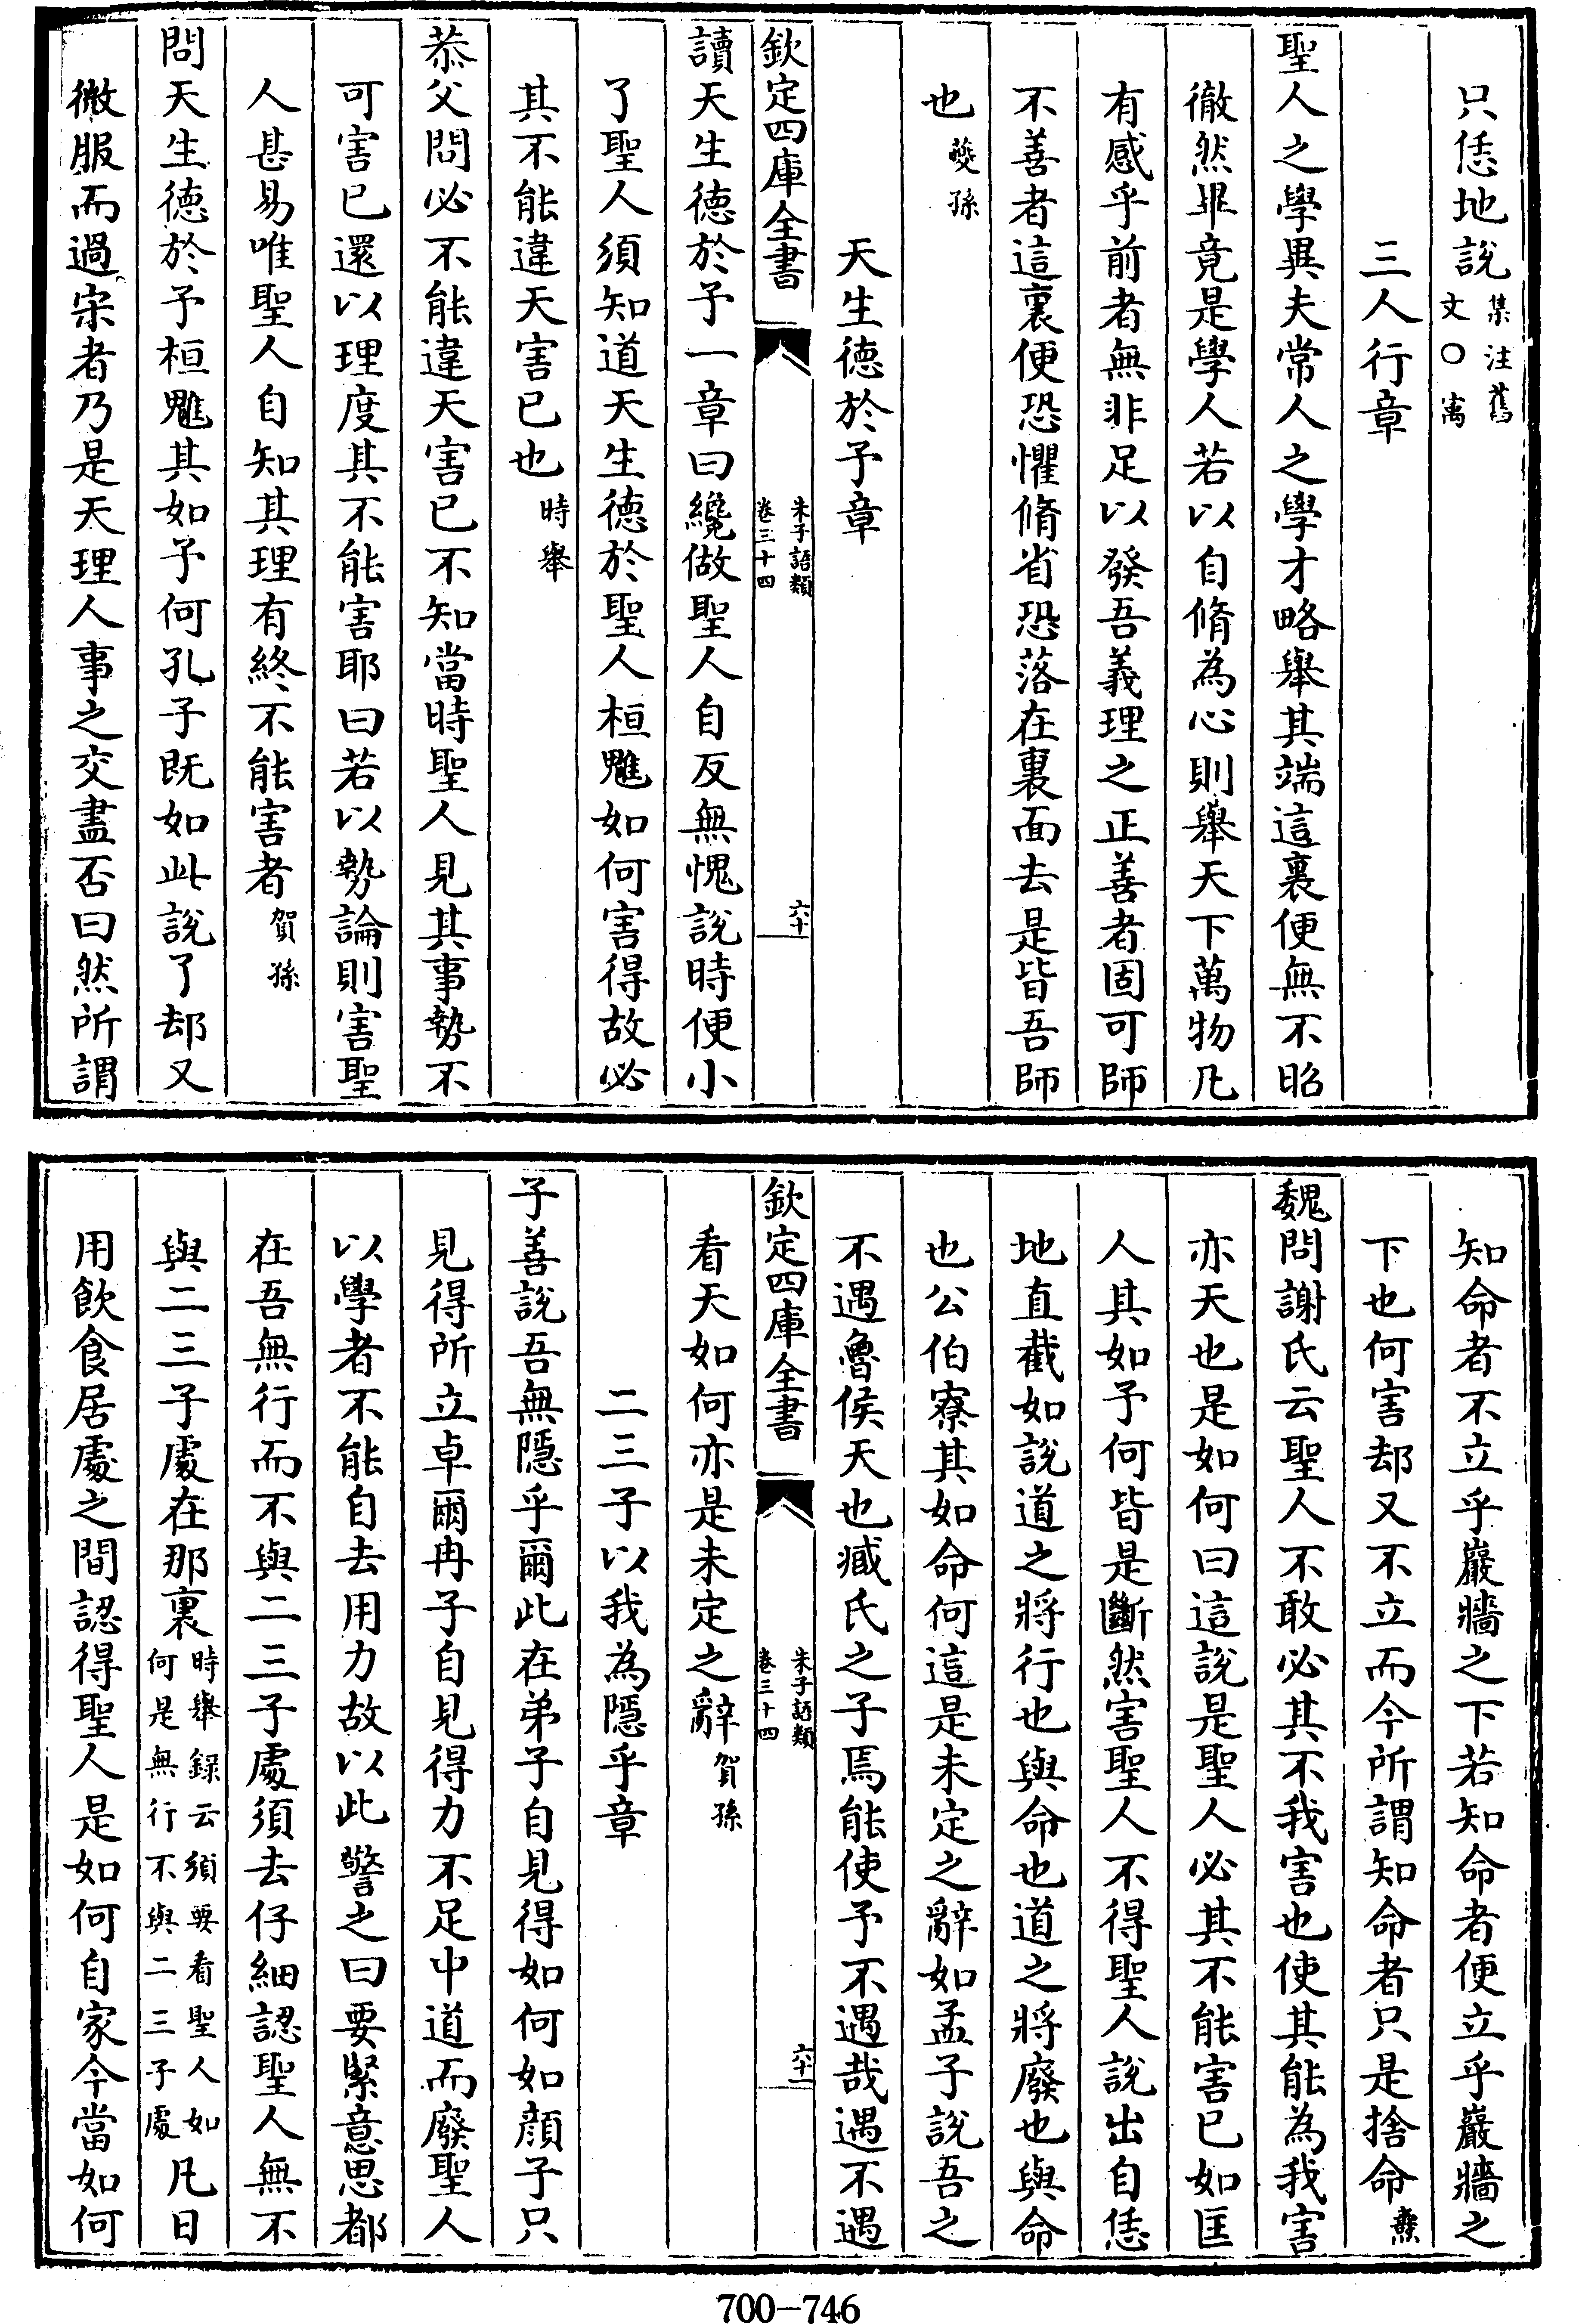 只恁地說集注舊文〇㝢
三人行章
聖人之學異夫常人之學才略舉其端這裏便無不昭
徹然畢竟是學人若以自脩為心則舉天下萬物凡
有感乎前者無非足以發吾義理之正善者固可師
不善者這裏便恐懼脩省恐落在裏面去是皆吾師
也䕫孫
天生德於予章
欽定四庫全書
朱子語類
卷三十四
六十
讀天生德於予一章曰纔做聖人自反無愧說時便小
了聖人須知道天生德於聖人桓魋如何害得故必
其不能違天害已也時舉
恭父問必不能違天害已不知當時聖人見其事勢不
可害已還以理度其不能害耶曰若以勢論則害聖
人甚易唯聖人自知其理有終不能害者賀孫
問天生德於予桓魋其如予何孔子既如此說了却又
微服而過宋者乃是天理人事之交盡否曰然所謂
知命者不立乎巖牆之下若知命者便立乎巖牆之
下也何害却又不立而今所謂知命者只是捨命燾
魏問謝氏云聖人不敢必其不我害也使其能為我害
亦天也是如何曰這說是聖人必其不能害已如匡
人其如予何皆是斷然害聖人不得聖人說出自恁
地直截如說道之將行也與命也道之將廢也與命
也公伯寮其如命何這是未定之辭如孟子說吾之
不遇魯侯天也臧氏之子焉能使予不遇哉遇不遇
欽定四庫全書
朱子語類
卷三十四
六十一
看天如何亦是未定之辭賀孫
二三子以我為隱乎章
子善說吾無隱乎爾此在弟子自見得如何如顔子只
見得所立卓爾冉子自見得力不足中道而廢聖人
以學者不能自去用力故以此警之曰要緊意思都
在吾無行而不與二三子處須去仔細認聖人無不
與二三子處在那裏時舉録云須要看聖人如何是無行不與二三子處凡日
用飲食居處之間認得聖人是如何自家今當如何
700-746